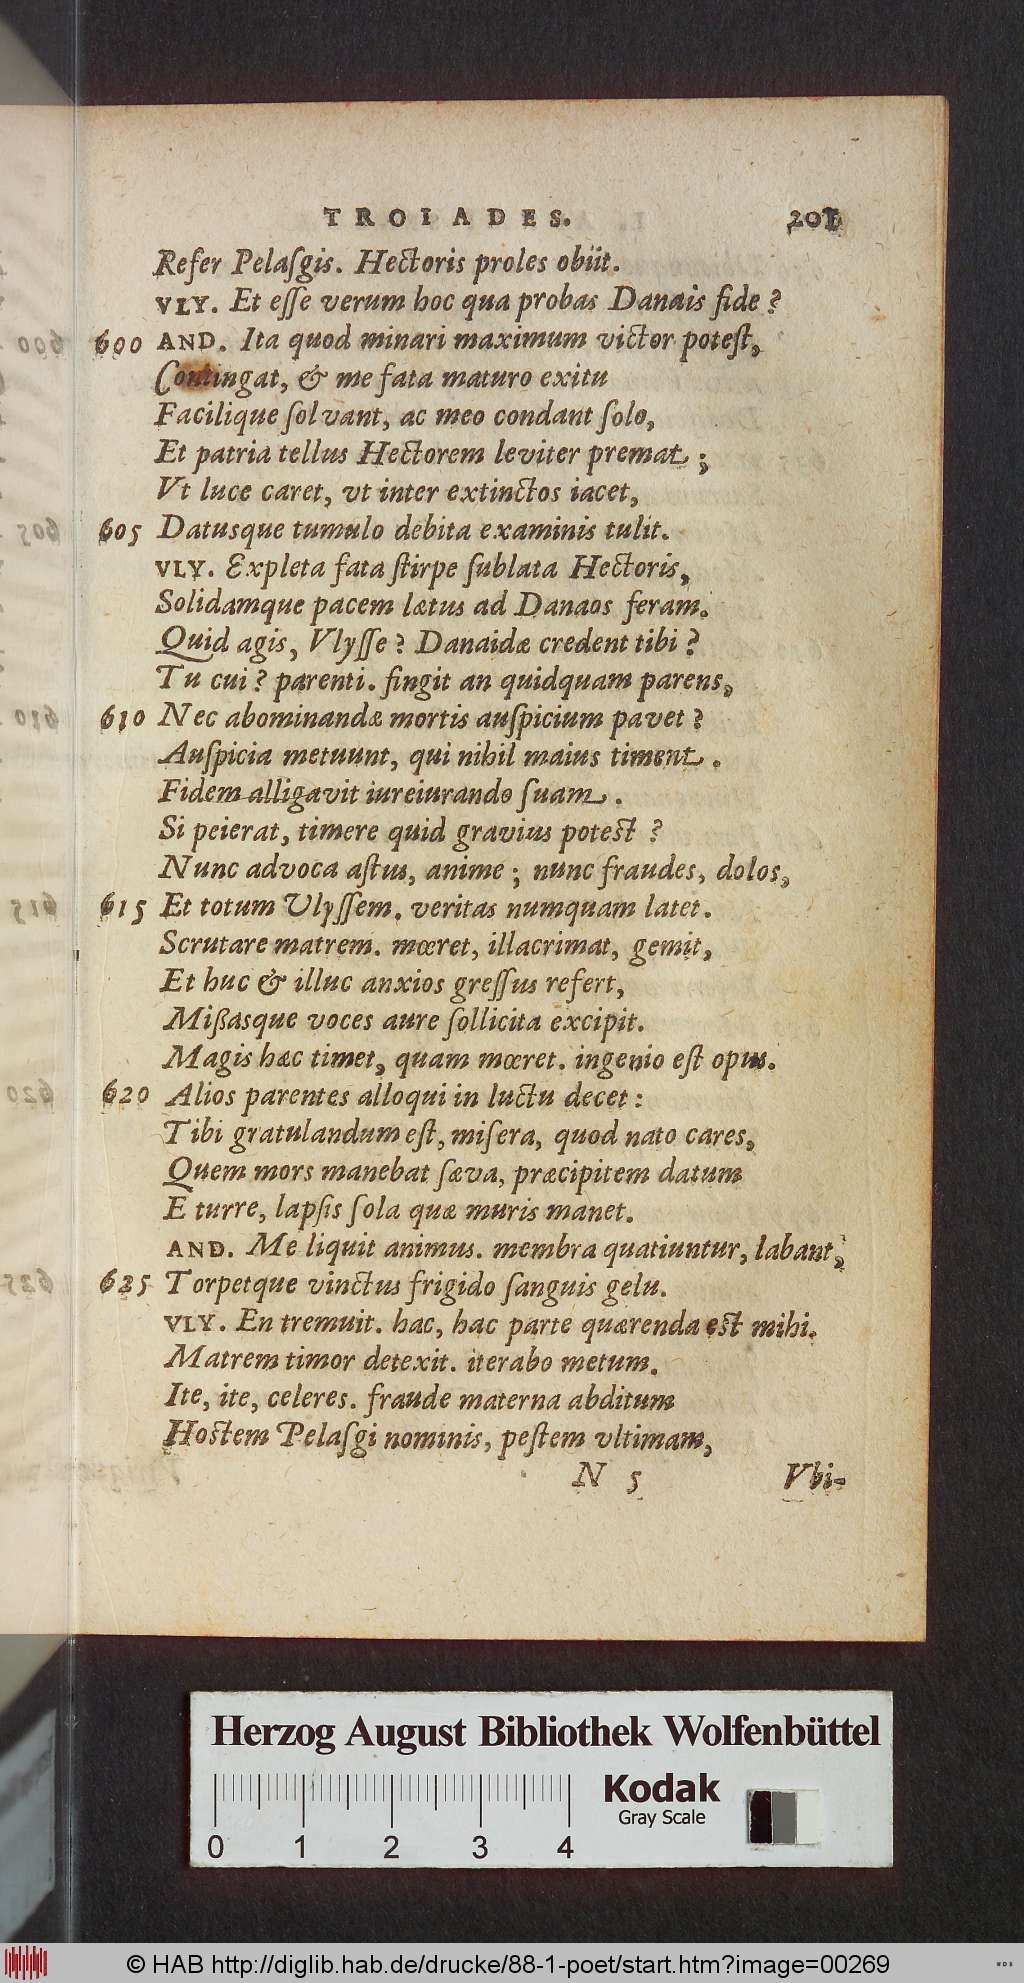 TROIADES. 201
Refer Pelaſgis. Hectoris proles obiit.
VLY. Et eſſe verum hoc qua probas Danais fide?
600 AND. Ita quod minari maximum victor poteſt,
Contingat, & me fata maturo exitu
Facilique ſolvant, ac meo condant ſolo,
Et patria tellus Hectorem leviter premat;
Vt luce caret, vt inter extinctos iacet,
605 Datusque tumulo debita examinis tulit.
VLY. Expleta fata ſtirpe ſublata Hectoris,
Solidamque pacem lætus ad Danaos feram.
Quid agis, Vlyſſe? Danaidæ credent tibi?
Tu cui? parenti. fingit an quidquam parens,
610 Nec abominandæ mortis auſpicium pavet?
Auſpicia metuunt, qui nihil maius timent.
Fidem alligavit iureiurando ſuam.
Si peierat, timere quid gravius poteſt?
Nunc advoca aſtus, anime; nunc fraudes, dolos,
615 Et totum Ulyſſem. veritas numquam latet.
Scrutare matrem. mœret, illacrimat, gemit,
Et huc & illuc anxios greſſus refert,
Mißasque voces aure ſollicita excipit.
Magis hæc timet, quam mœret. ingenio eſt opus.
620 Alios parentes alloqui in luctu decet:
Tibi gratulandum eſt, miſera, quod nato cares,
Quem mors manebat ſæva, præcipitem datum
E turre, lapſis ſola quæ muris manet.
AND. Me liquit animus. membra quatiuntur, labant,
625 Torpetque vinctus frigido ſanguis gelu.
VLY. En tremuit. hac, hac parte quærenda eſt mihi.
Matrem timor detexit. iterabo metum.
Ite, ite, celeres. fraude materna abditum
Hoſtem Pelaſgi nominis, peſtem vltimam,
N 5 Vbi-
Herzog August Bibliothek Wolfenbüttel
Kodak
Gray Scale
0 1 2 3 4
© HAB http://diglib.hab.de/drucke/88-1-poet/start.htm?image=00269